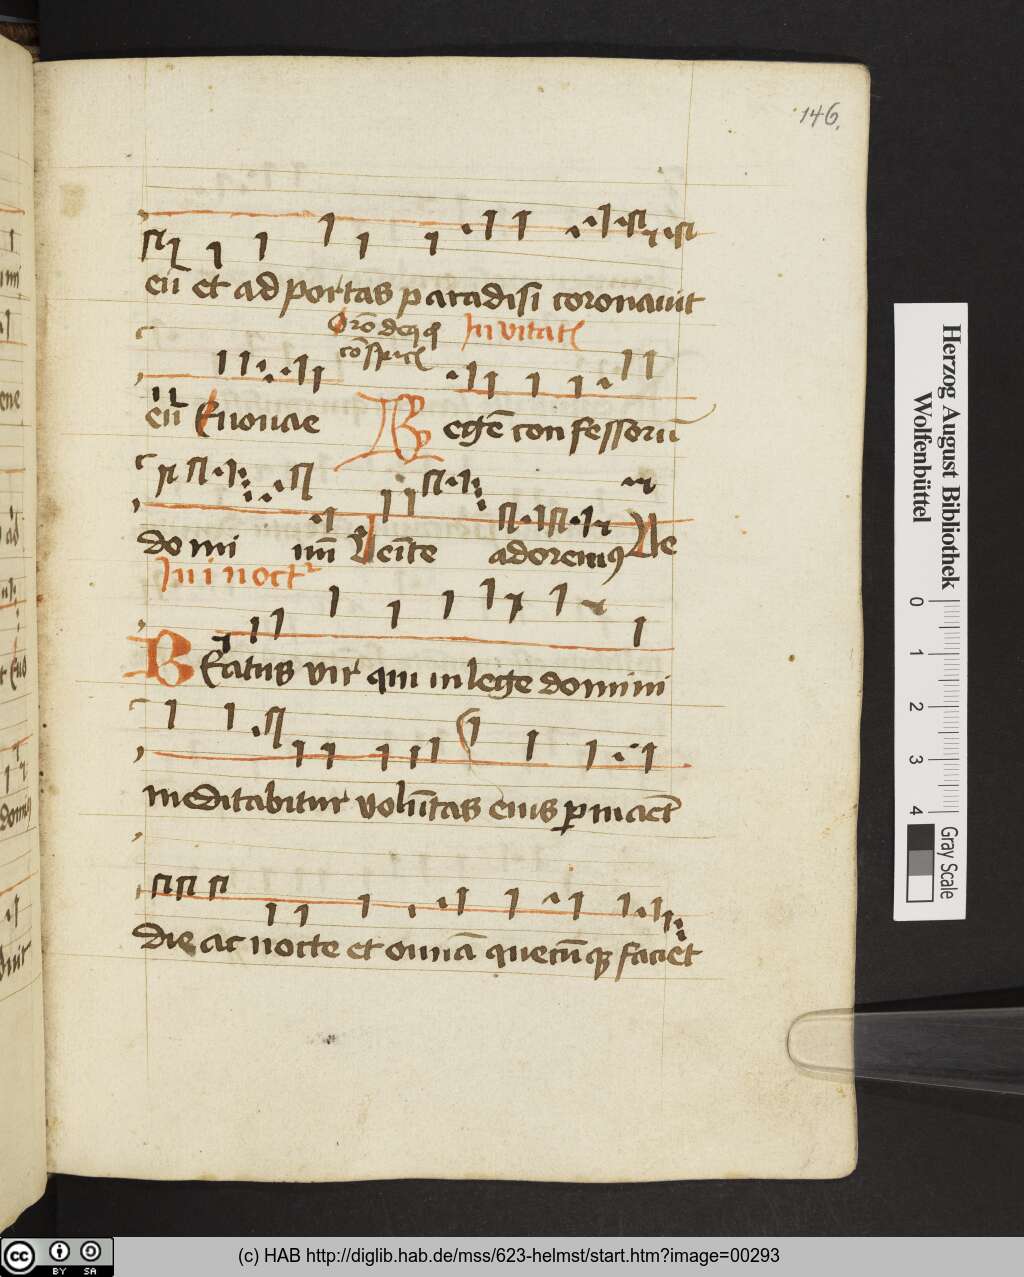 146.
eū et ad portas paradisi coronauit
Oro deq̄
In vitat
eū Euouae Regē confessorū
domi nū Ueīte adoremꝰ Ue
In i noct
BEatus vir qui in lege domini
meditabitur volūtas eius ꝑmaet
die ac nocte et omīa quecūqꝫ faciet
Herzog August Bibliothek
Wolfenbüttel
0 1 2 3 4
Gray Scale
cc BY SA
(c) HAB http://diglib.hab.de/mss/623-helmst/start.htm?image=00293